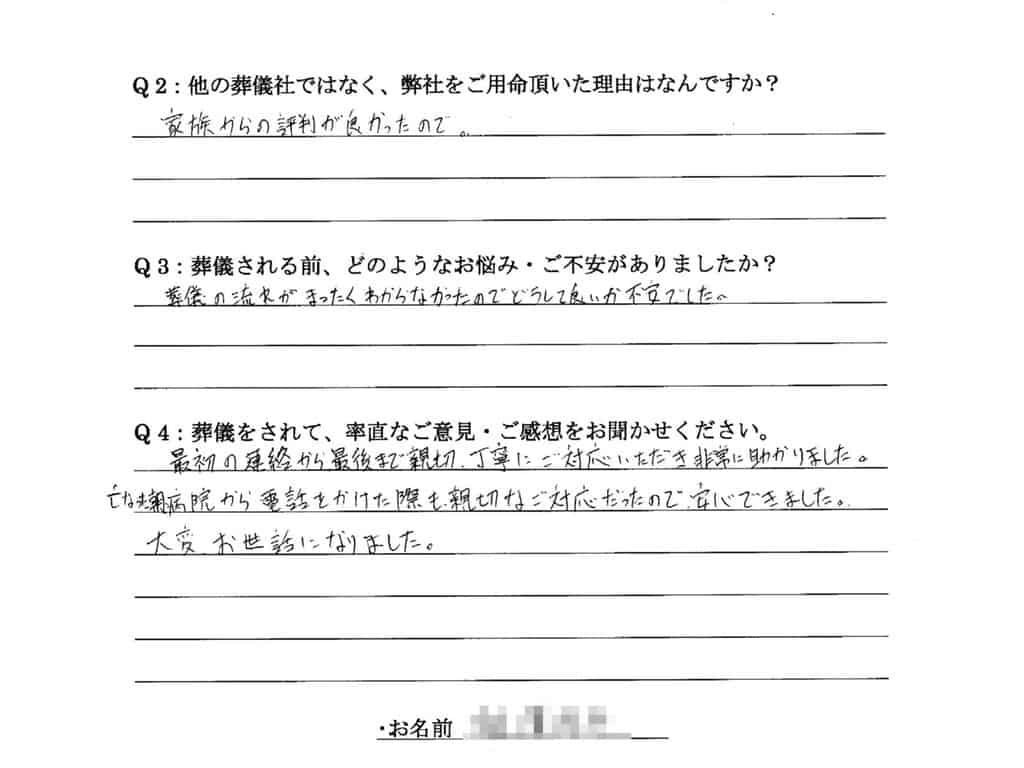 Q2:他の葬儀社ではなく、弊社をご用命頂いた理由はなんですか?
家族からの評判が良かったので。
Q3:葬儀される前、どのようなお悩み・ご不安がありましたか?
葬儀の流れがまったくわからなかったのでどうして良いか不安でした。
Q4:葬儀をされて、率直なご意見・ご感想をお聞かせください。
最初の連絡から最後まで親切、丁寧にご対応いただき非常に助かりました。
病院から電話をかけた際も、親切なご対応だったので、安心できました。
大変、お世話になりました。
・お名前